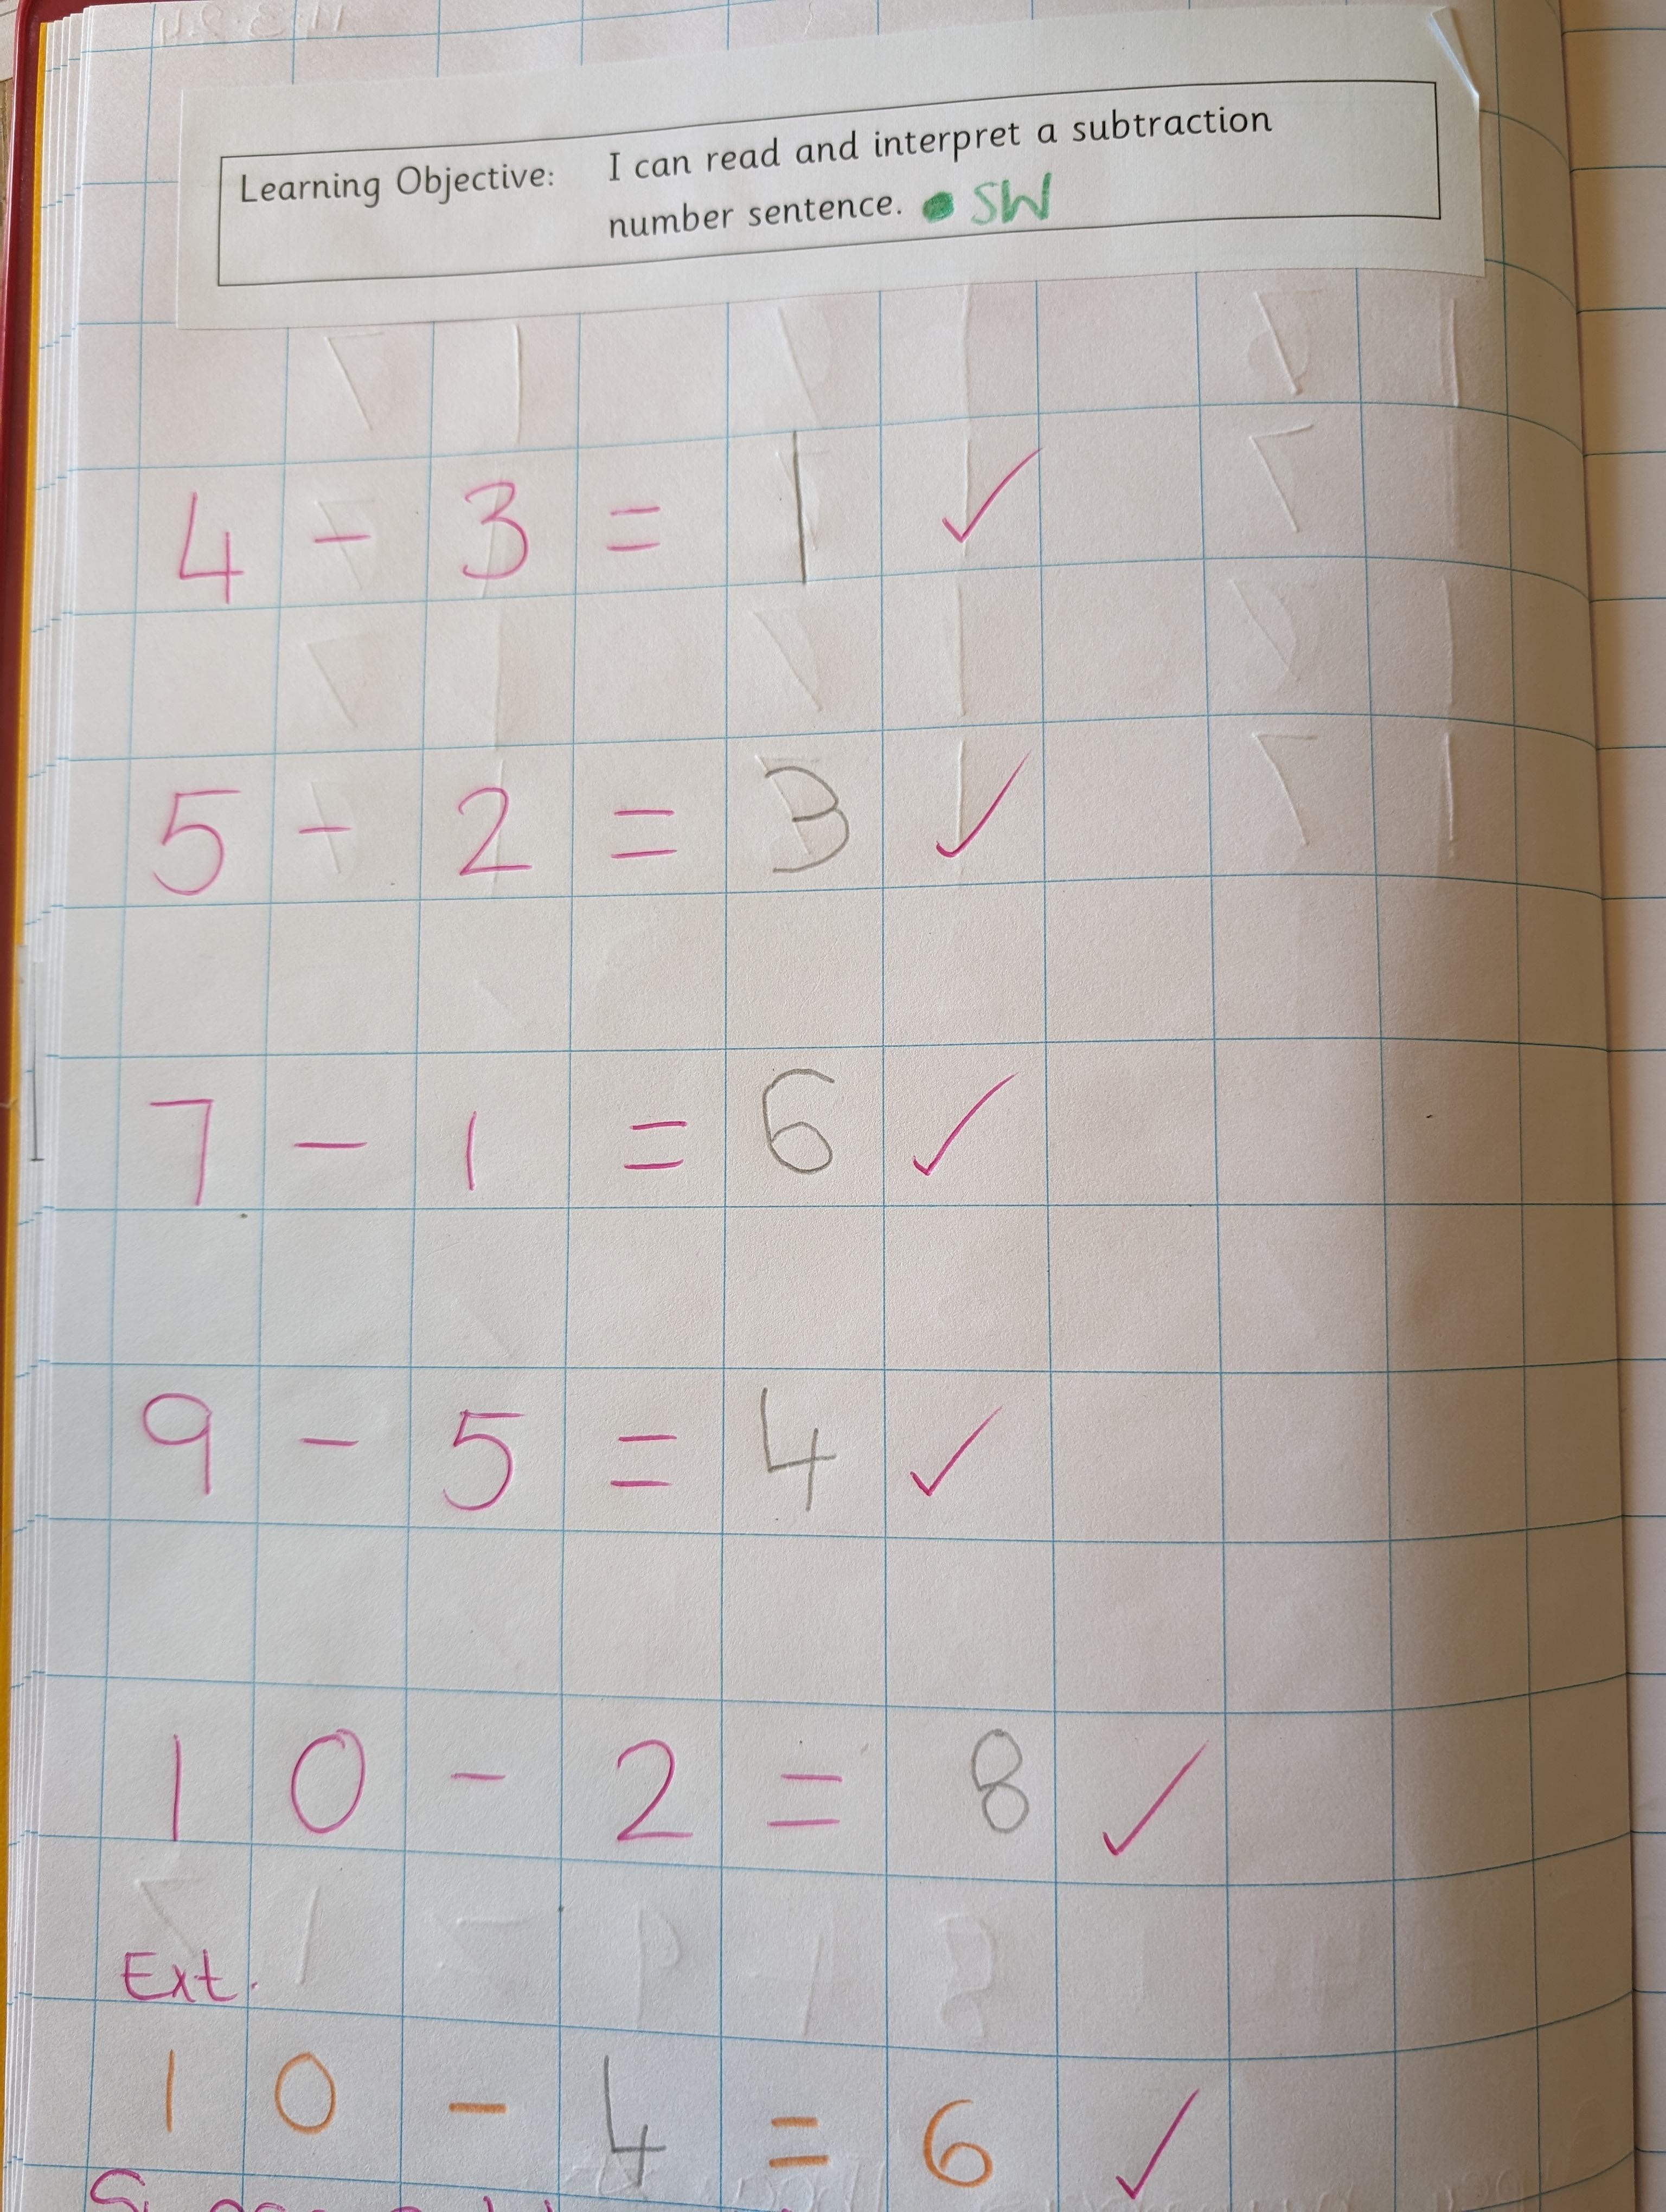 Learning Objective: I can read and interpret a subtraction
number sentence. SW
4 - 3 = 1 ✓
5 - 2 = 3 ✓
7 - 1 = 6 ✓
9 - 5 = 4 ✓
10 - 2 = 8 ✓
Ext.
10 - 4 = 6 ✓